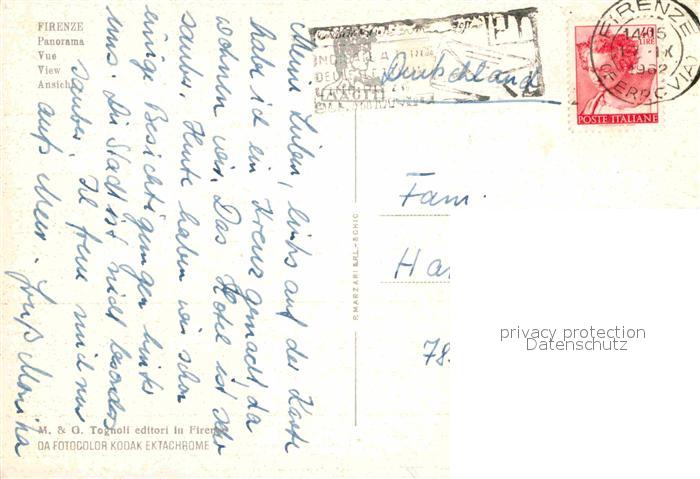 FIRENZE
Panorama
Vue
View
Ansicht
Meine Lieben, links auf der Karte
habe ich ein Kreuz gemacht, da
wohnen wir. Das Hotel ist sehr
sauber. Heute haben wir schon
einige Besichtigungen hinter
uns. Die Stadt ist nicht besonders
sauber. Ich freue mich nur
aufs Meer. Gruß Monika
M. & G. Tognoli editori in Firenze
DA FOTOCOLOR KODAK EKTACHROME
P. MARZARI S.R.L. - SCHIO
Deutschland
FIRENZE
14-15
1962
FERROVIA
LIRE
POSTE ITALIANE
Fam.
Ha
78
privacy protection
Datenschutz